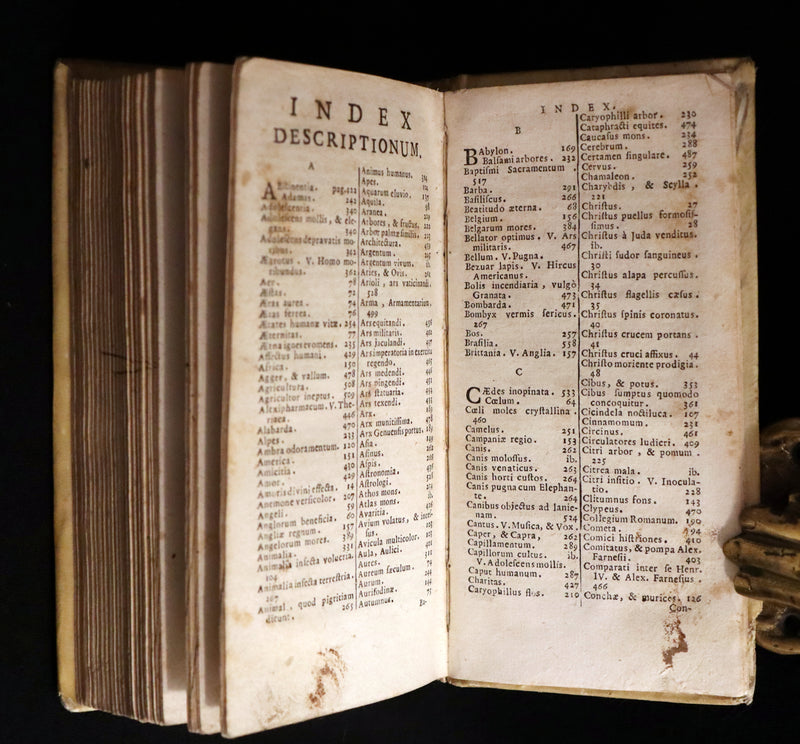 INDEX
DESCRIPTIONUM.
A
Abstinentia. pag.122
Adamas. 242
Adolescentia. 340
Adolescens mollis, & ele-
gans. 340
Adolescens depravatis mo-
ribus. 342
Ægrotus. V. Homo mo-
ribundus. 362
Aer. 78
Æstas. 72
Ætas aurea. 74
Ætas ferrea. 76
Ætates humanæ vitæ. 254
Æternitas. 77
Ætna ignes evomens. 235
Affectus humani. 429
Africa. 150
Agger, & vallum. 478
Agricultura. 508
Agricultor ineptus. 509
Alexipharmacum. V. The-
riaca. 446
Alabarda. 470
Alpes. 233
Ambra odoramentum. 120
America. 151
Amicitia. 430
Amor. 429
Amoris divini effecta. 14
Anemone versicolor. 207
Angeli. 59
Anglorum beneficia. 60
Angliæ regnum. 157
Angelorum mores. 389
Animalia. 331
Animalia insecta volucria.
104
Animalia insecta terrestria.
267
Animal, quod pigritiam
dicunt. 265
Animus humanus.
Apes.
Aquarum eluvio.
Aquila.
Aranea.
Arbores, & fructus.
Arbor palmæ similis.
Architectura.
Argentum.
Argentum vivum.
Aries, & Ovis.
Arioli, ars vaticinandi.
518
Arma, Armamentarium.
499
Ars equitandi.
Ars militaris.
Ars jaculandi.
Ars imperatoria in exercitu
regendo.
Ars medendi.
Ars pingendi.
Ars statuaria.
Ars texendi.
Arx.
Arx munitissima.
Arx Genuensis portus.
Asia.
Asinus.
Aspis.
Astronomia.
Astrologi.
Athos mons.
Atlas mons.
Avaritia.
Avium volatus, & inces-
sus.
Avicula multicolor.
Aula, Aulici.
Aures.
Aureum sæculum.
Aurum.
Aurifodinæ.
Autumnus.
B-
INDEX.
B
BAbylon. 169
Balsami arbores. 232
Baptismi Sacramentum.
517
Barba. 291
Basiliscus. 266
Beatitudo æterna. 68
Belgium. 156
Belgarum mores. 384
Bellator optimus. V. Ars
militaris. 467
Bellum. V. Pugna.
Bezuar lapis. V. Hircus
Americanus.
Bolis incendiaria, vulgò
Granata. 473
Bombarda. 471
Bombyx vermis sericus.
267
Bos. 257
Brasilia. 558
Brittania. V. Anglia. 157
C
CÆdes inopinata. 533
Cœlum. 64
Cœli moles crystallina.
460
Camelus. 251
Campaniæ regio. 153
Canis. 262
Canis molossus. ib.
Canis venaticus. 263
Canis horti custos. 264
Canis pugna cum Elephan-
te. 264
Canibus objectus ad lanie-
nam. 524
Cantus. V. Musica, & Vox.
Caper, & Capra, 262
Capillamentum. 289
Capillorum cultus. ib.
V. Adolescens mollis.
Caput humanum. 287
Charitas. 427
Caryophillus flos. 210
Caryophilli arbor. 230
Cataphracti equites. 474
Caucasus mons. 234
Cerebrum. 288
Certamen singulare. 487
Cervus. 259
Chamaleon. 252
Charybdis, & Scylla.
221
Christus. 27
Christus puellus formosis-
simus. 28
Christus à Juda venditus.
ib.
Christi sudor sanguineus.
30
Christus alapa percussus.
34
Christus flagellis cæsus.
35
Christus spinis coronatus.
40
Christus crucem portans.
41
Christus cruci affixus. 44
Christo moriente prodigia.
48
Cibus, & potus. 353
Cibus sumptus quomodo
concoquitur. 361
Cicindela noctiluca. 107
Cinnamomum. 231
Circinus. 461
Circulatores ludicri. 409
Citri arbor, & pomum.
225
Citrea mala. ib.
Citri insitio. V. Inocula-
tio. 228
Clitumnus fons. 143
Clypeus. 470
Collegium Romanum. 190
Cometa. 94
Comici histriones. 410
Comitatus, & pompa Alex.
Farnesii. 403
Comparati inter se Henr.
IV. & Alex. Farnesius.
466
Conchæ, & murices. 126
Con-